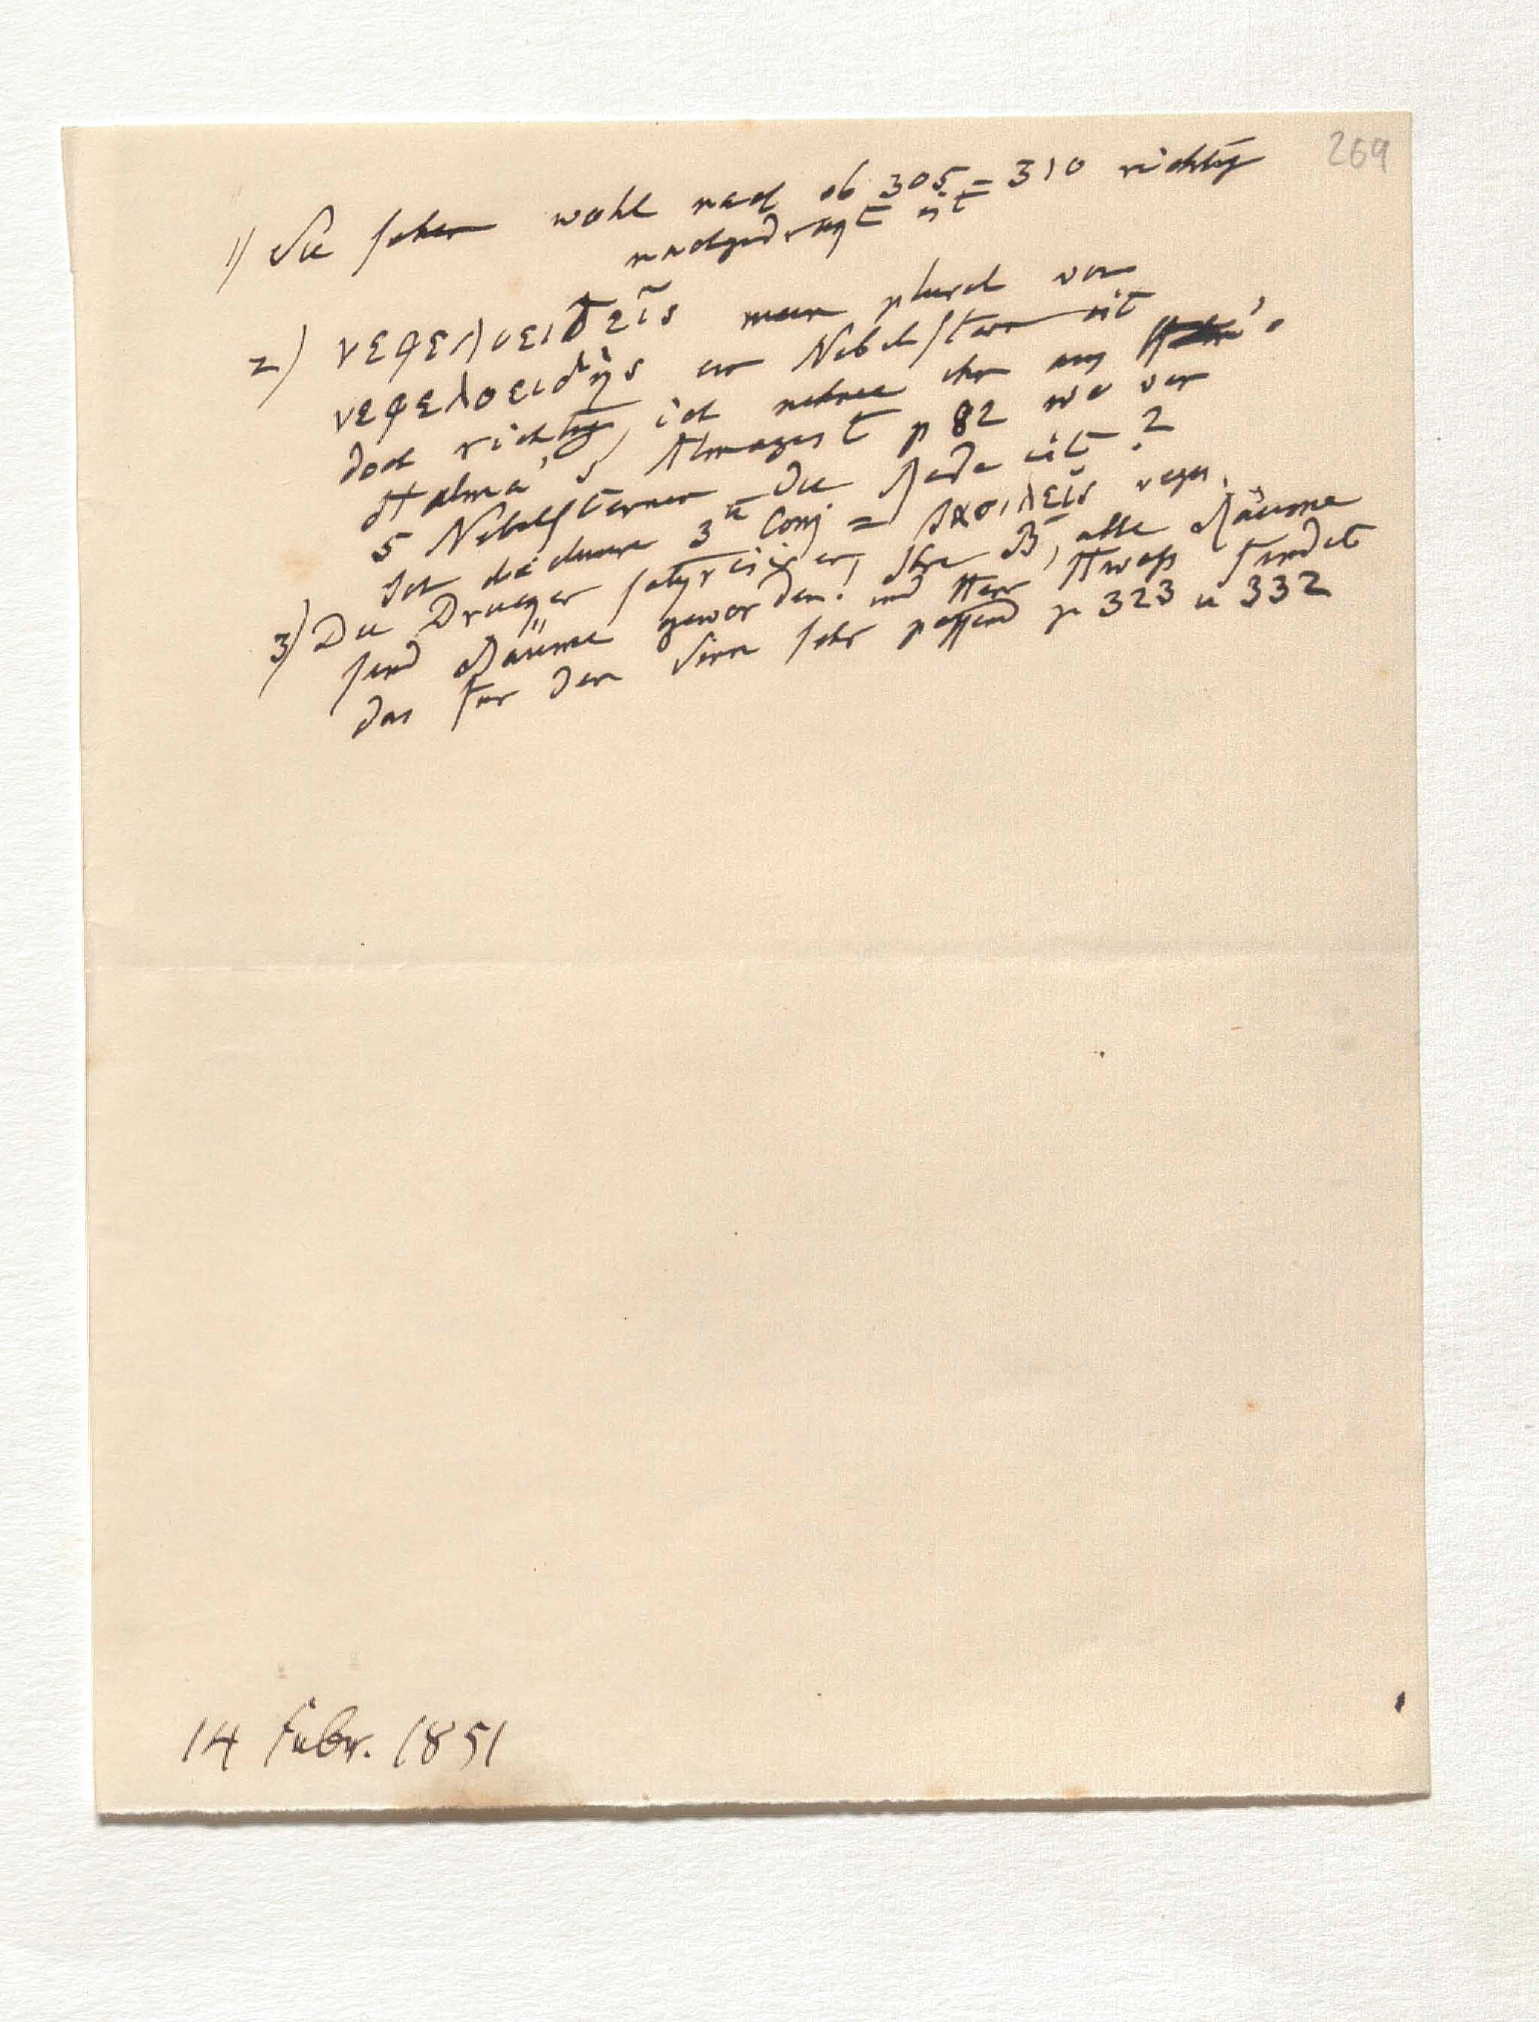 269
1) Sie sehen wohl nach ob 305–310 richtig
nachgedragt ist
2) νεφελοειδεῖς mein plural von
νεφελοειδὴς ein Nebelstern ist
doch richtig, ich nehme ihn aus
Halma's Almagest p 82 wo von
5 Nebelsternen die Rede ist?
Ich 3te Conj = βασιλεῖς
3) Die Drucker satyrisiren, Ihre B, alle Räume
sind Bäume geworden! und Herr findet
das für den Sinn sehr passend p 323 u 332
14 Febr. 1851